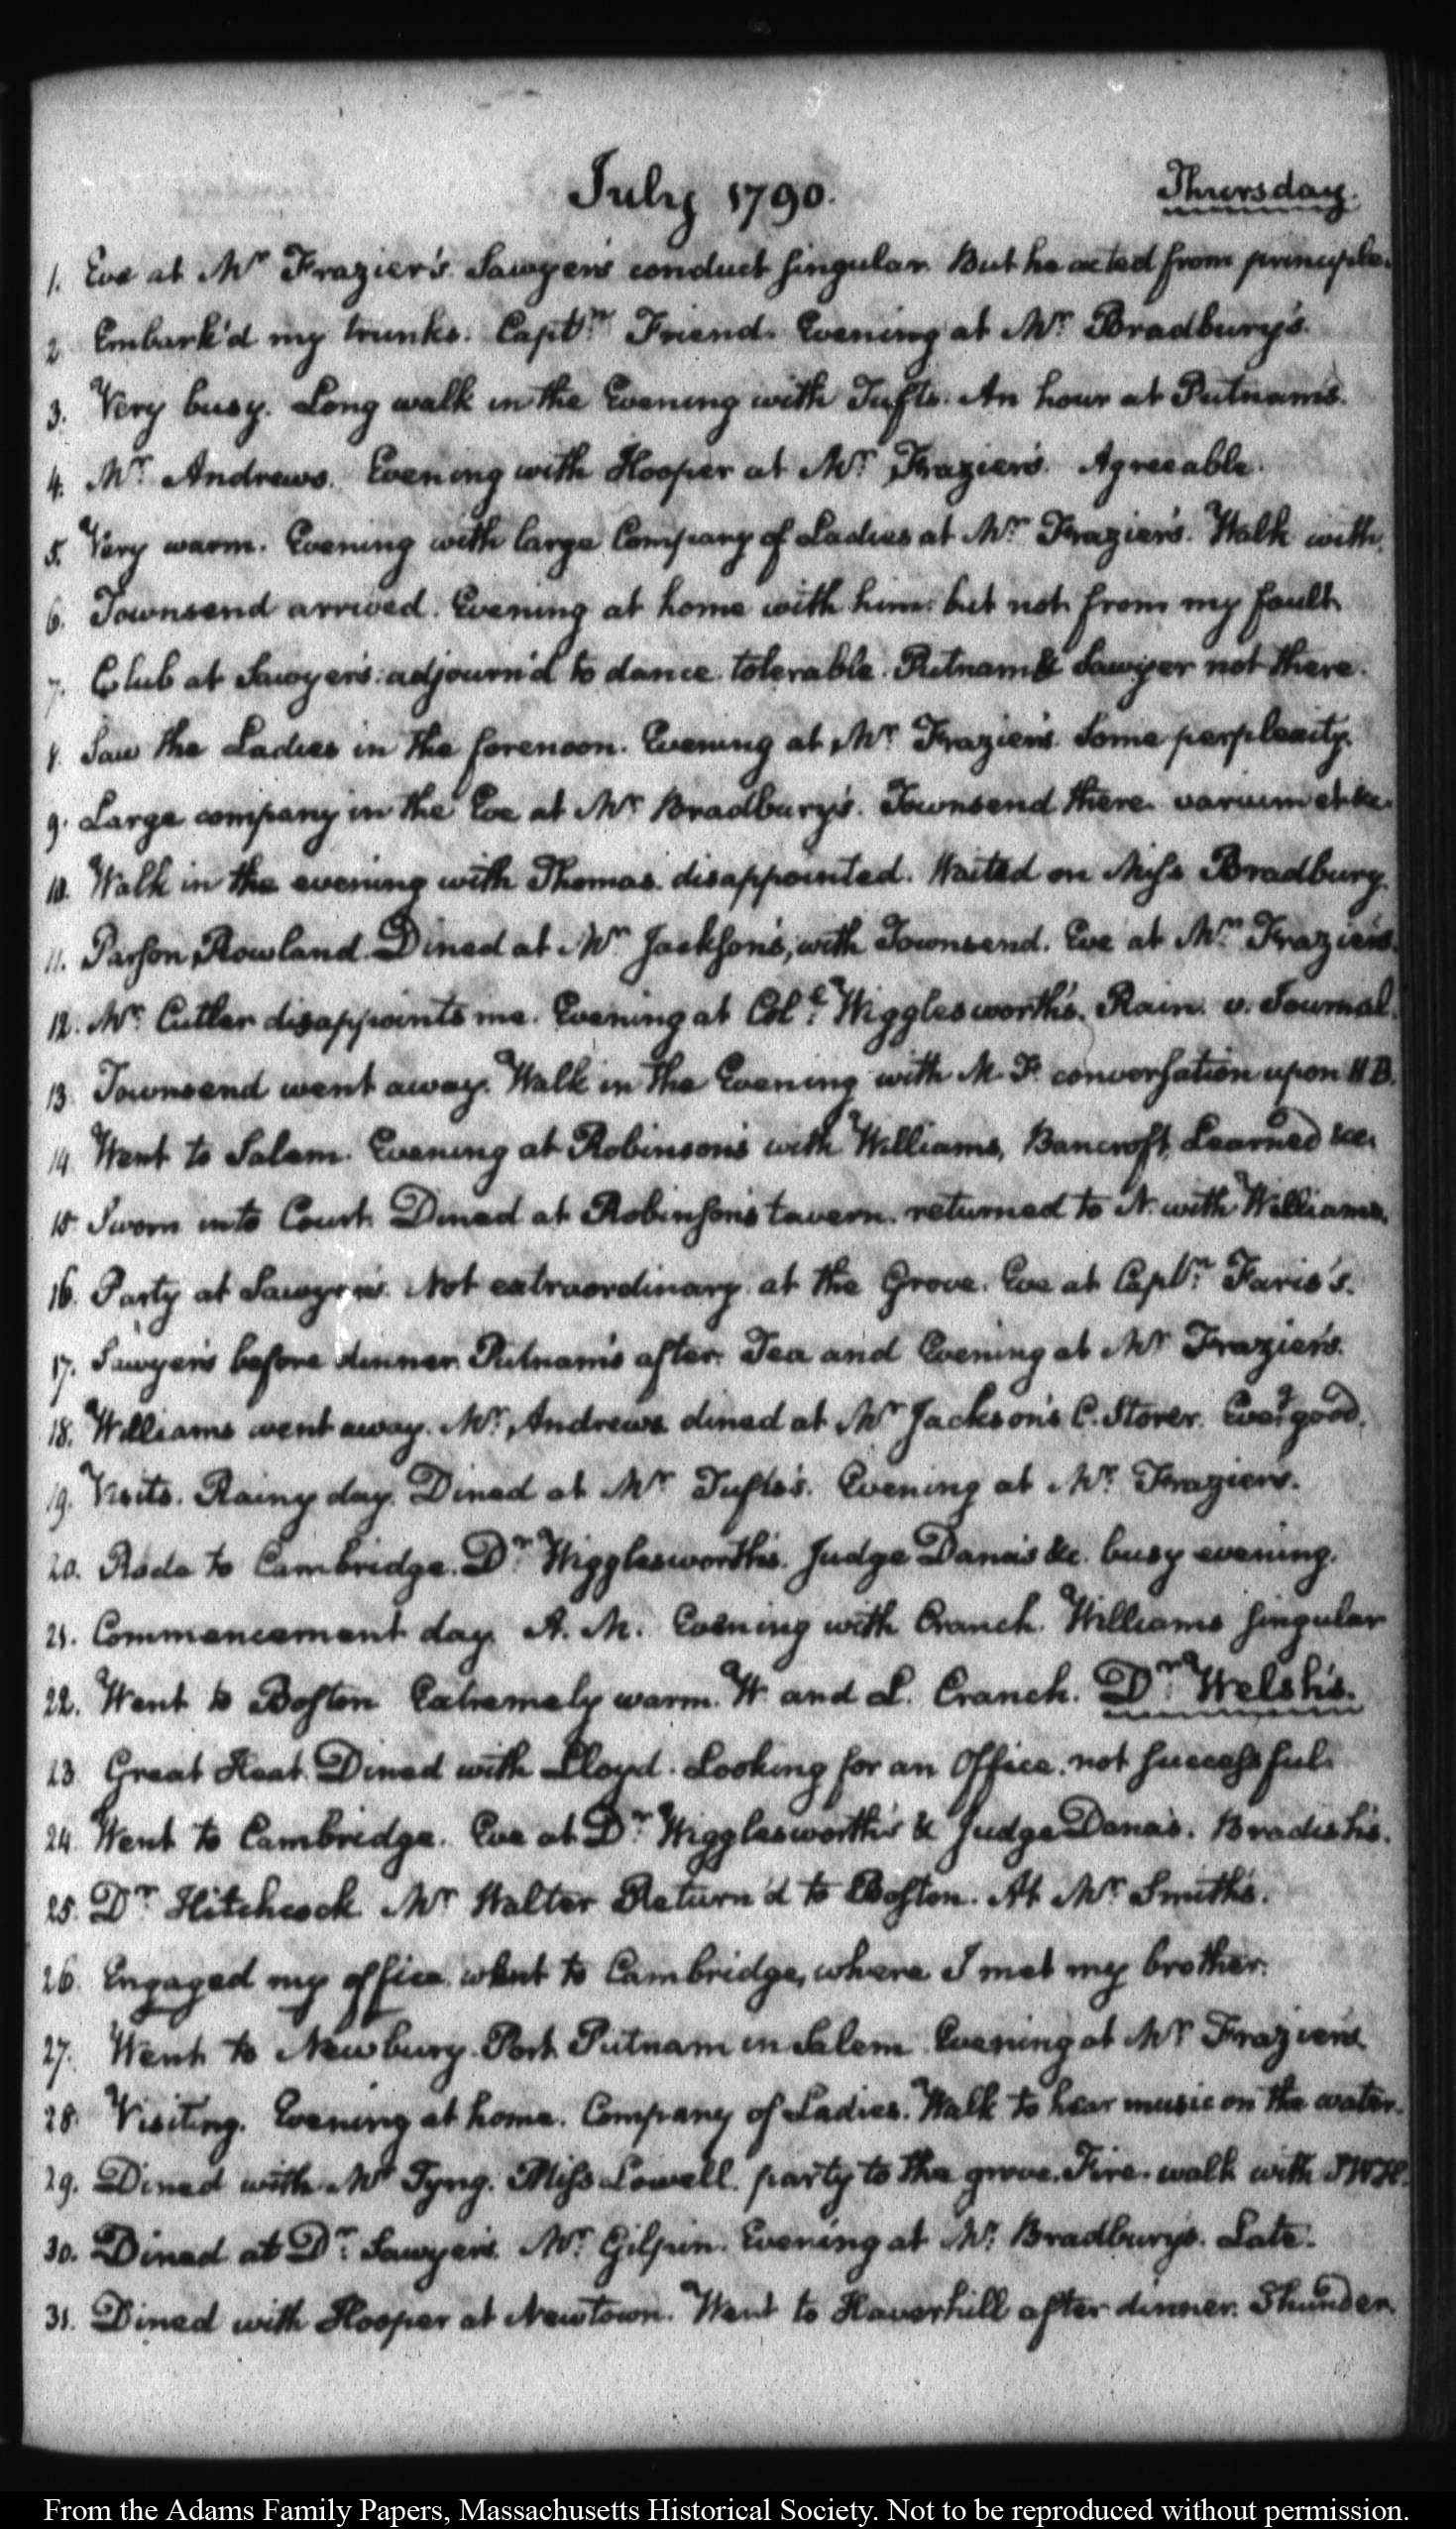 July 1790.
Thursday.
1. Eve at Mr Frazier's. Sawyer's conduct singular. But he acted from principle.
2. Embark'd my trunks. Captn. Friend. Evening at Mr. Bradbury's.
3. Very busy. Long walk in the Evening with Tufts. An hour at Putnam's.
4. Mr. Andrews. Evening with Hooper at Mr. Frazier's. Agreeable.
5. Very warm. Evening with large Company of Ladies at Mr. Frazier's. Walk with.
6. Townsend arrived. Evening at home with him: but not from my fault.
7. Club at Sawyer's: adjourn'd to dance. tolerable. Putnam & Sawyer not there.
8. Saw the Ladies in the forenoon. Evening at Mr. Frazier's. Some perplexity.
9. Large company in the Eve at Mr Bradbury's. Townsend there. varium et &c.
10. Walk in the evening with Thomas. disappointed. Waited on Miss Bradbury.
11. Parson Rowland. Dined at Mr. Jackson's, with Townsend. Eve at Mr. Frazier's.
12. Mr. Cutler disappoints me. Evening at Coll. Wigglesworth's. Rain. v. Journal.
13. Townsend went away. Walk in the Evening with M. F. conversation upon
14. Went to Salem. Evening at Robinson's with Williams, Bancroft, Learned &c.
15. Sworn into Court. Dined at Robinson's tavern. returned to N. with Williams.
16. Party at Sawyer's. Not extraordinary. at the Grove. Eve at Captn. Faris's.
17. Sawyer's before dinner. Putnam's after. Tea and Evening at Mr Frazier's.
18. Williams went away. Mr. Andrews dined at Mr Jackson's C. Storer. good.
19. Visits. Rainy day. Dined at Mr Tufts's. Evening at Mr. Frazier's.
20. Rode to Cambridge. Dr. Wigglesworth's. Judge Dana's &c. busy evening.
21. Commencement day. A. M. Evening with Cranch. Williams singular
22. Went to Boston Extremely warm. W. and L. Cranch. Dr. Welsh's.
23. Great Heat. Dined with Lloyd. Looking for an Office. not successful.
24. Went to Cambridge. Eve at Dr. Wigglesworth's & Judge Dana's. Bradish's.
25. Dr. Hitchcock. Mr Walter Return'd to Boston. At Mr. Smith's.
26. Engaged my office. went to Cambridge, where I met my brother.
27. Went to Newbury-Port. Putnam in Salem. Evening at Mr Frazier's.
28. Visiting. Evening at home. Company of Ladies. Walk to hear music on the water.
29. Dined with Mr Tyng. Miss Lowell. party to the grove. Fire. walk with
30. Dined at Dr. Sawyer's. Mr. Gilpin. Evening at Mr. Bradbury's. Late.
31. Dined with Hooper at Newtown. Went to Haverhill after dinner. Thunder.
From the Adams Family Papers, Massachusetts Historical Society. Not to be reproduced without permission.